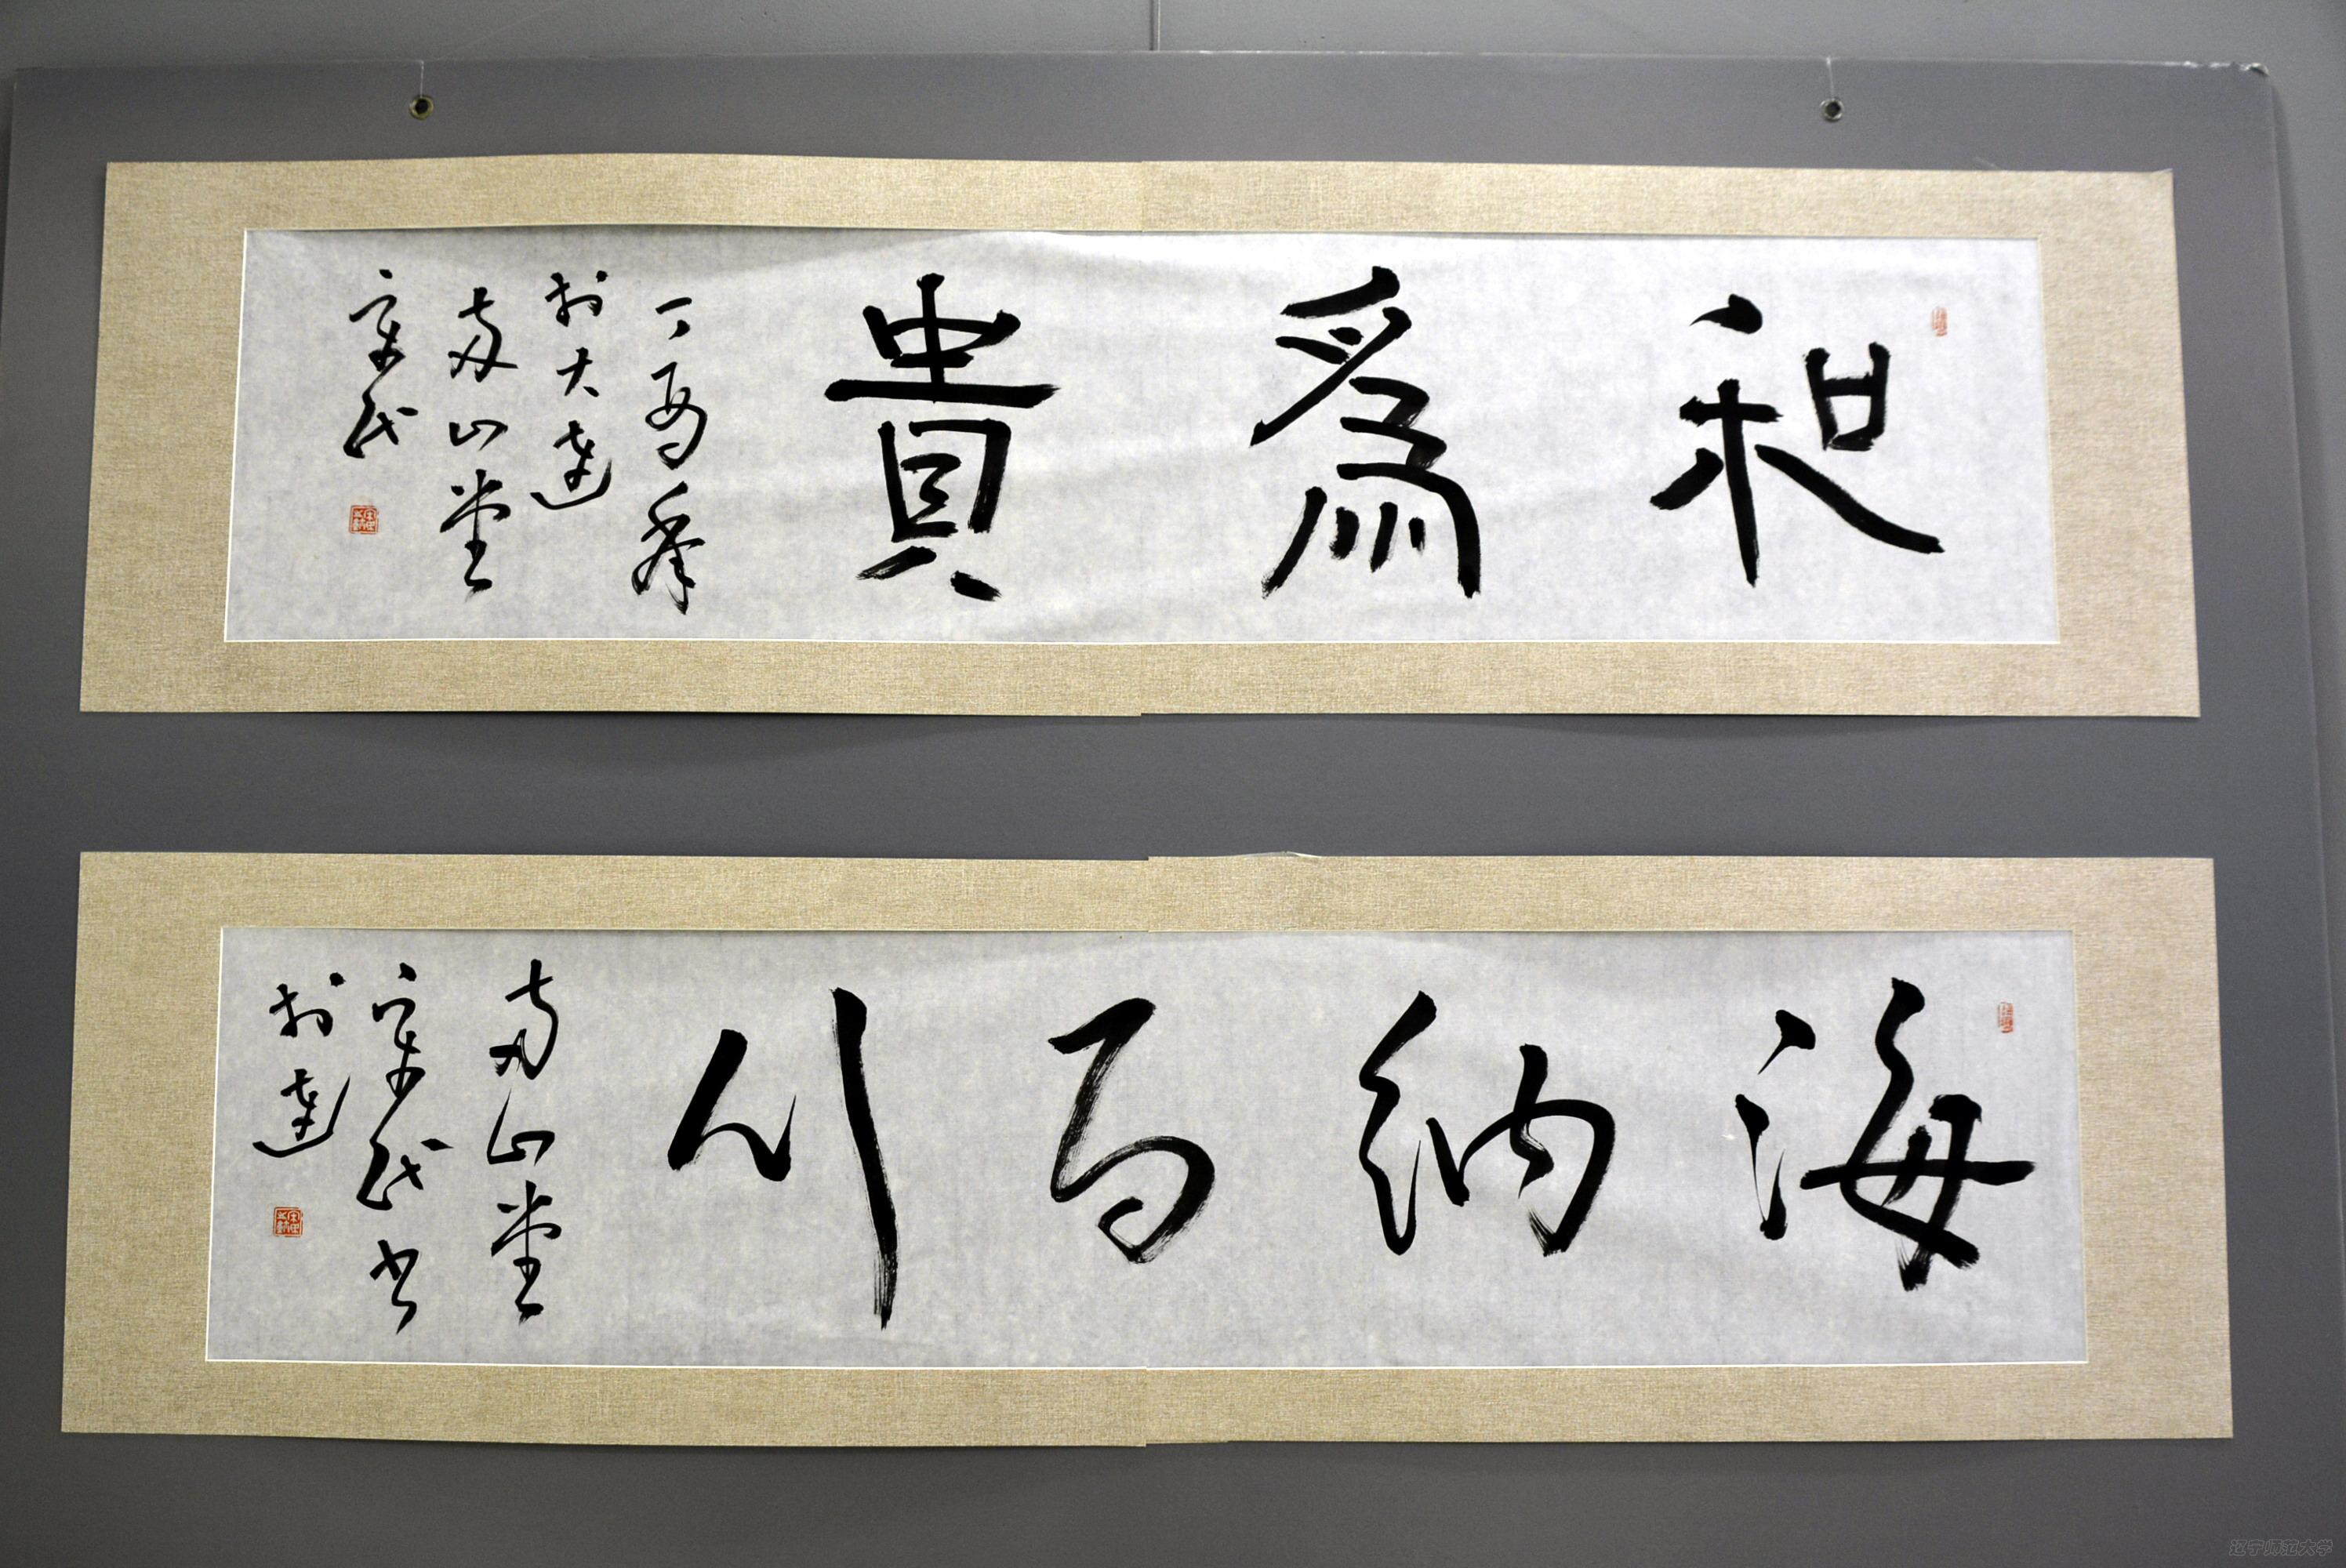 和為貴
丁酉季
於大連
南山堂
海納百川
南山堂
書
於連
辽宁师范大学